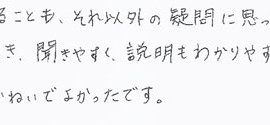 ることも、それ以外の疑問に思っ
き、聞きやすく、説明もわかりやす
いねいでよかったです。